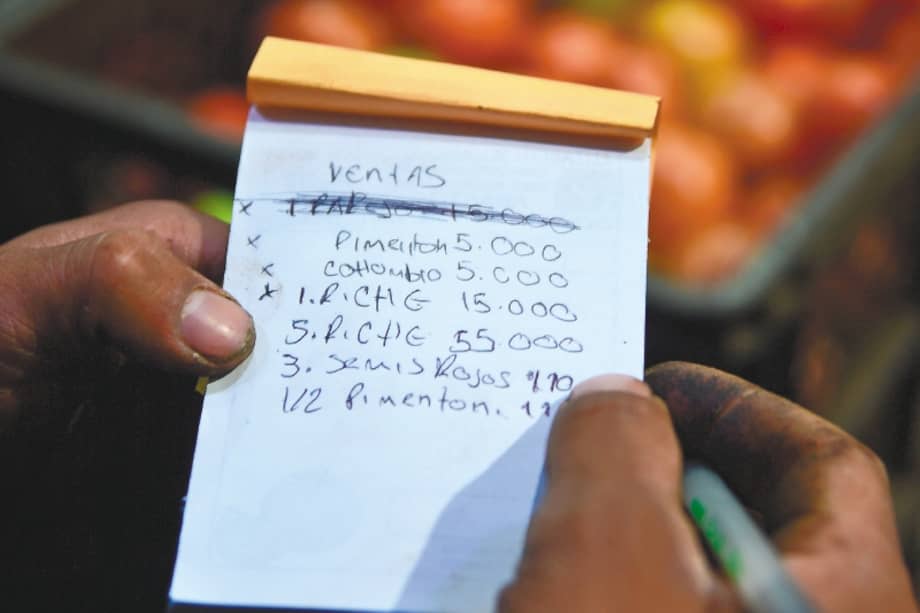 Ventas
x 1 PAREJO 15.000
x Pimenton 5.000
x COHOMBRO 5.000
x 1. RICHE 15.000
5. RICHE 55.000
3. Semis Rojos
1/2 Pimenton.